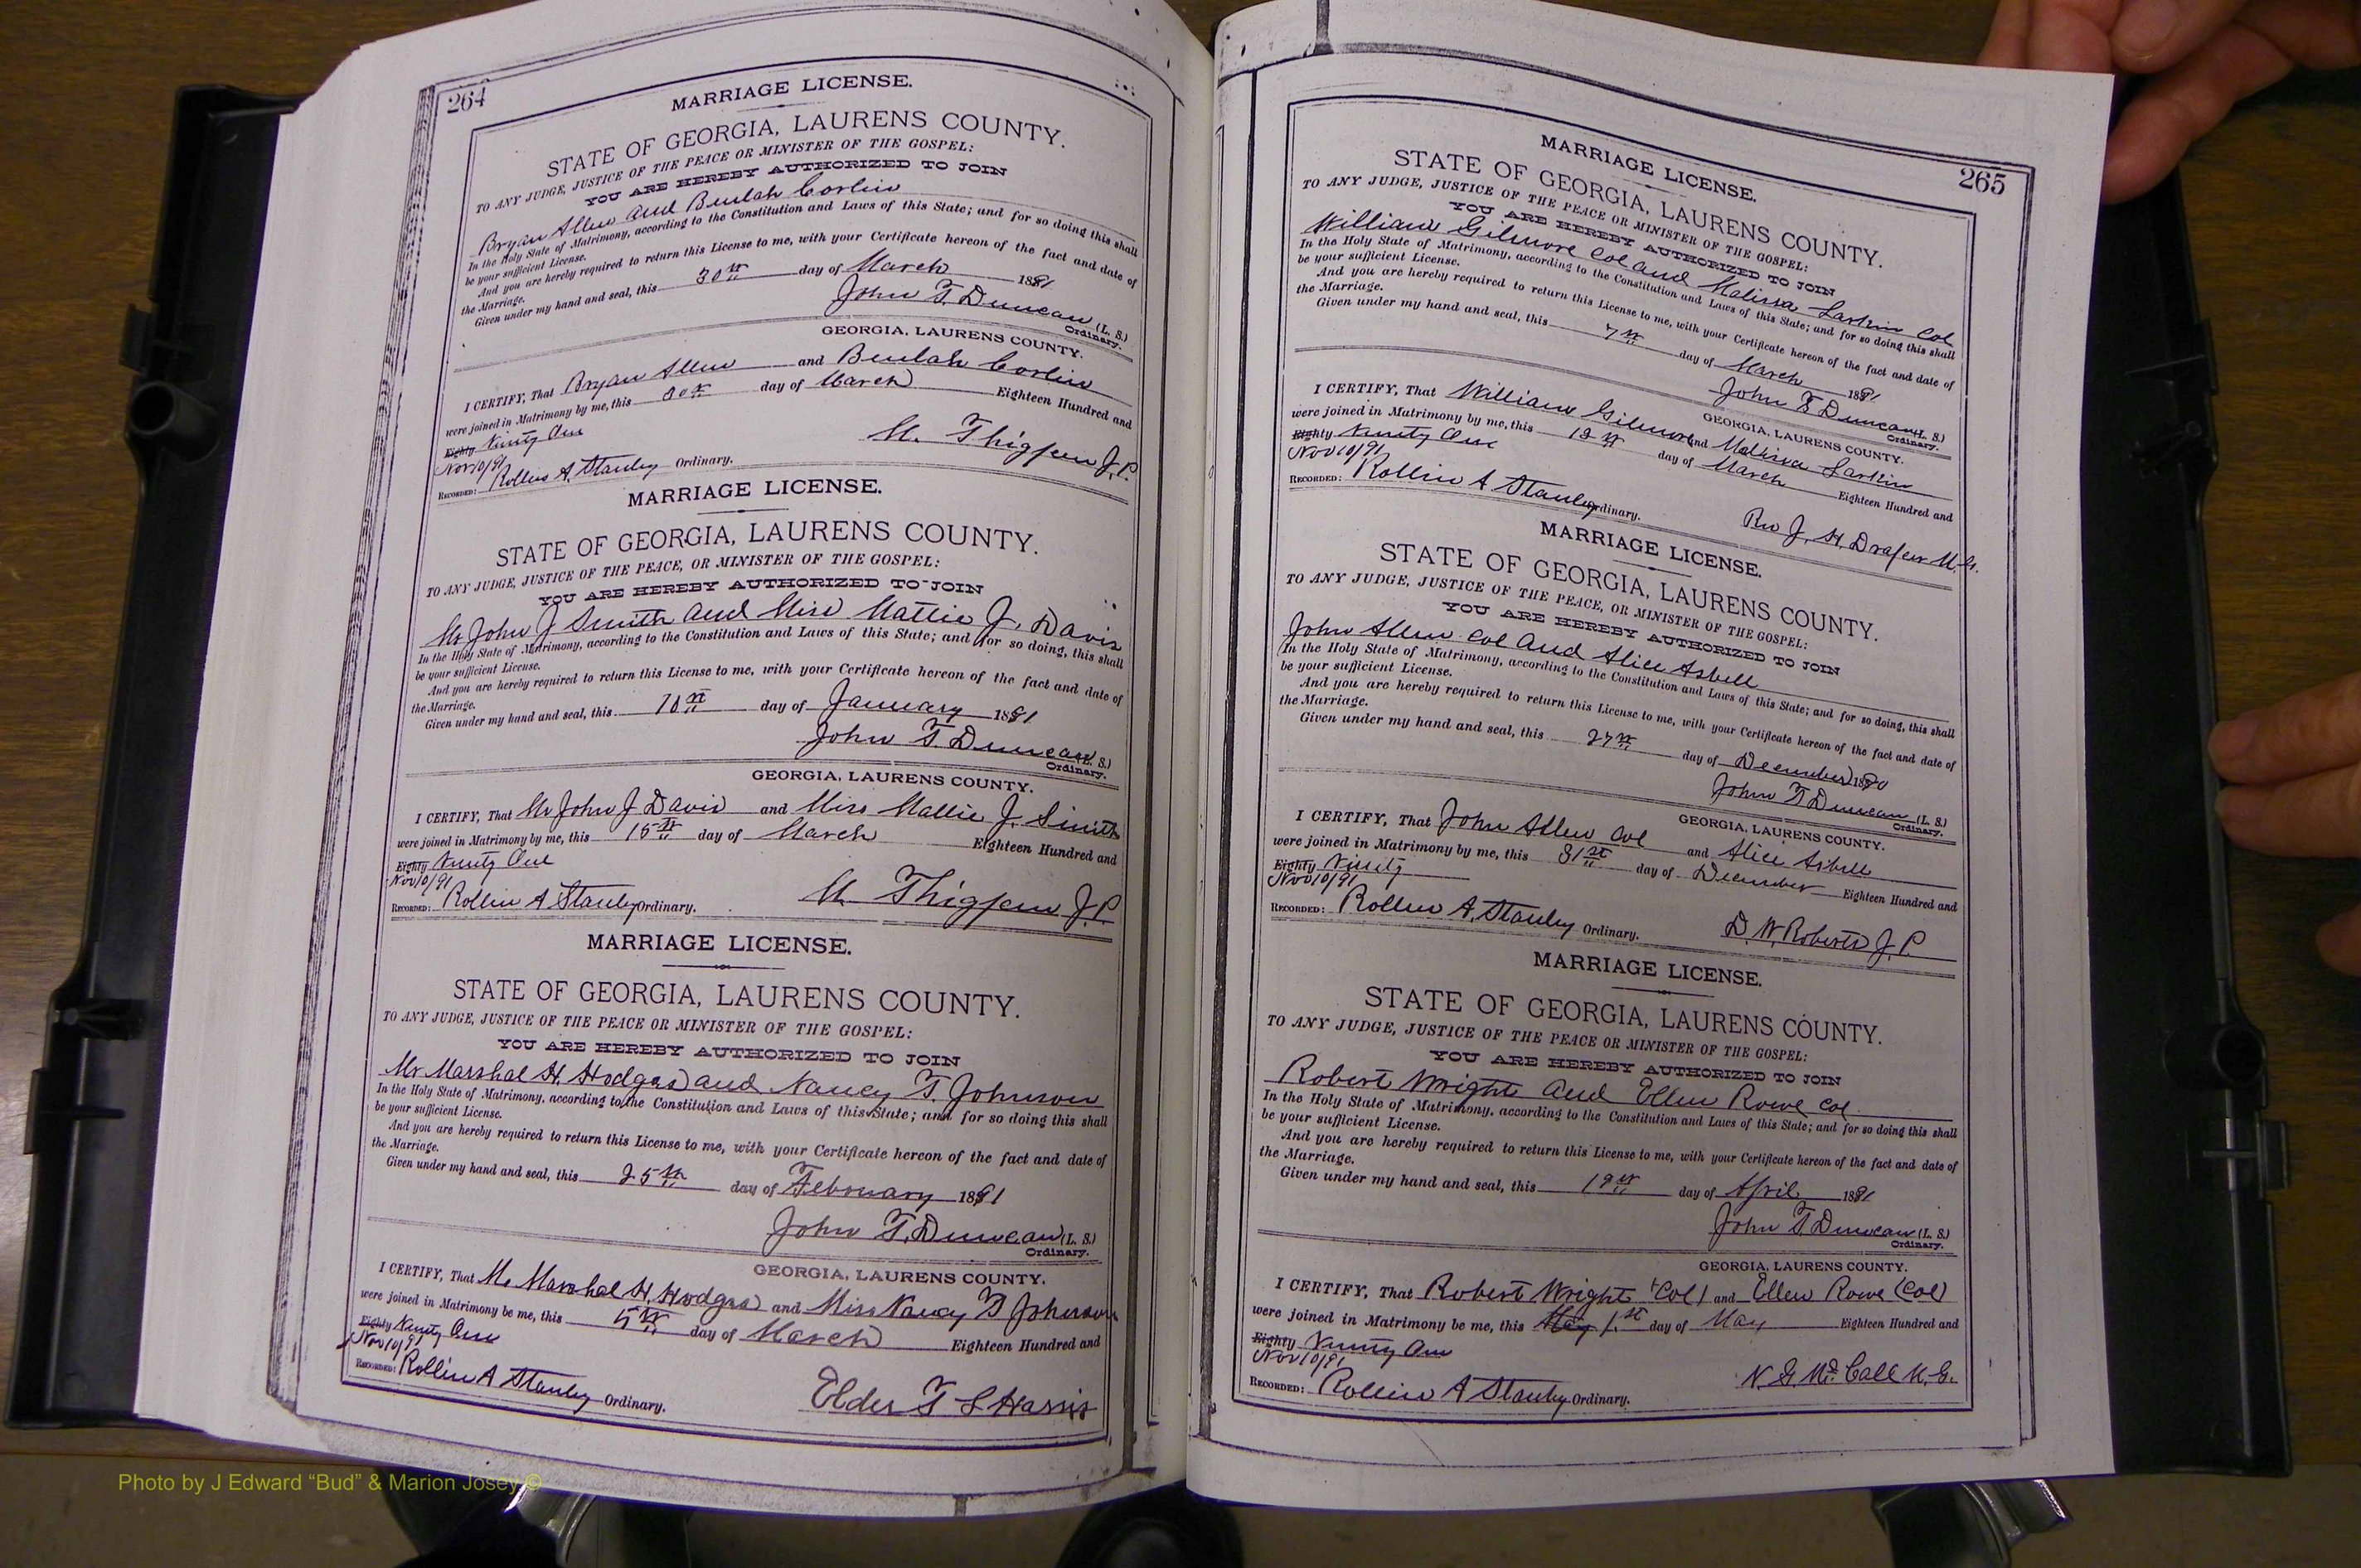 264
MARRIAGE LICENSE.
STATE OF GEORGIA, LAURENS COUNTY.
TO ANY JUDGE, JUSTICE OF THE PEACE OR MINISTER OF THE GOSPEL:
YOU ARE HEREBY AUTHORIZED TO JOIN
Bryan Allen and Beulah Corlin
In the Holy State of Matrimony, according to the Constitution and Laws of this State; and for so doing this shall
be your sufficient License.
And you are hereby required to return this License to me, with your Certificate hereon of the fact and date of
the Marriage.
Given under my hand and seal, this 30th day of March 1891
John T. Duncan (L. S.)
Ordinary.
GEORGIA, LAURENS COUNTY.
I CERTIFY, That Bryan Allen and Beulah Corlin
were joined in Matrimony by me, this 30th day of March Eighteen Hundred and
Eighty Ninety One
Nov 10/91 M. Thigpen J.P.
RECORDED: Rollin A. Stanley Ordinary.
MARRIAGE LICENSE.
STATE OF GEORGIA, LAURENS COUNTY.
TO ANY JUDGE, JUSTICE OF THE PEACE, OR MINISTER OF THE GOSPEL:
YOU ARE HEREBY AUTHORIZED TO JOIN
Mr John J Smith and Miss Mattie J. Davis
In the Holy State of Matrimony, according to the Constitution and Laws of this State; and for so doing, this shall
be your sufficient License.
And you are hereby required to return this License to me, with your Certificate hereon of the fact and date of
the Marriage.
Given under my hand and seal, this 10th day of January 1891
John T. Duncan (L. S.)
Ordinary.
GEORGIA, LAURENS COUNTY.
I CERTIFY, That Mr John J Davis and Miss Mallie J. Smith
were joined in Matrimony by me, this 15th day of March Eighteen Hundred and
Eighty Ninety One
Nov 10/91 M Thigpen J.P.
RECORDED: Rollin A Stanley Ordinary.
MARRIAGE LICENSE.
STATE OF GEORGIA, LAURENS COUNTY.
TO ANY JUDGE, JUSTICE OF THE PEACE OR MINISTER OF THE GOSPEL:
YOU ARE HEREBY AUTHORIZED TO JOIN
Mr Marshal H. Hodges and Nancy T. Johnson
In the Holy State of Matrimony, according to the Constitution and Laws of this State; and for so doing this shall
be your sufficient License.
And you are hereby required to return this License to me, with your Certificate hereon of the fact and date of
the Marriage.
Given under my hand and seal, this 25th day of February 1891
John T. Duncan (L. S.)
Ordinary.
GEORGIA, LAURENS COUNTY.
I CERTIFY, That Mr Marshal H. Hodges and Miss Nancy T Johnson
were joined in Matrimony be me, this 5th day of March Eighteen Hundred and
Eighty Ninety One
Nov 10/91
RECORDED: Rollin A Stanley Ordinary. Elder T S Harris
265
MARRIAGE LICENSE.
STATE OF GEORGIA, LAURENS COUNTY.
TO ANY JUDGE, JUSTICE OF THE PEACE OR MINISTER OF THE GOSPEL:
YOU ARE HEREBY AUTHORIZED TO JOIN
William Gilmore Col and Malissa Larkin Col
In the Holy State of Matrimony, according to the Constitution and Laws of this State; and for so doing this shall
be your sufficient License.
And you are hereby required to return this License to me, with your Certificate hereon of the fact and date of
the Marriage.
Given under my hand and seal, this 7th day of March 1891
John T Duncan (L. S.)
Ordinary.
GEORGIA, LAURENS COUNTY.
I CERTIFY, That William Gilmore and Larkin
were joined in Matrimony by me, this 12th day of March Eighteen Hundred and
Eighty Ninety One
Nov 10/91
RECORDED: Rollin A Stanley Ordinary. Rev J. H. Draper M. G.
MARRIAGE LICENSE.
STATE OF GEORGIA, LAURENS COUNTY.
TO ANY JUDGE, JUSTICE OF THE PEACE, OR MINISTER OF THE GOSPEL:
YOU ARE HEREBY AUTHORIZED TO JOIN
John Allen Col and Alice Asbell
In the Holy State of Matrimony, according to the Constitution and Laws of this State; and for so doing, this shall
be your sufficient License.
And you are hereby required to return this License to me, with your Certificate hereon of the fact and date of
the Marriage.
Given under my hand and seal, this 27th day of December 1890
John T Duncan (L. S.)
Ordinary.
GEORGIA, LAURENS COUNTY.
I CERTIFY, That John Allen Col and Alice Asbell
were joined in Matrimony by me, this 31st day of December Eighteen Hundred and
Eighty Ninety
Nov 10/91
RECORDED: Rollin A. Stanley Ordinary. D. W. Roberts J. P.
MARRIAGE LICENSE.
STATE OF GEORGIA, LAURENS COUNTY.
TO ANY JUDGE, JUSTICE OF THE PEACE OR MINISTER OF THE GOSPEL:
YOU ARE HEREBY AUTHORIZED TO JOIN
Robert Wright and Ellen Rowe Col
In the Holy State of Matrimony, according to the Constitution and Laws of this State; and for so doing this shall
be your sufficient License.
And you are hereby required to return this License to me, with your Certificate hereon of the fact and date of
the Marriage.
Given under my hand and seal, this 19th day of April 1891
John T. Duncan (L. S.)
Ordinary.
GEORGIA, LAURENS COUNTY.
I CERTIFY, That Robert Wright (Col) and Ellen Rowe (Col)
were joined in Matrimony be me, this May 1st day of May Eighteen Hundred and
Eighty Ninety One
Nov 10/91 N. G. McCall M. G.
RECORDED: Rollin A Stanley Ordinary.
Photo by J Edward “Bud” & Marion Josey ©